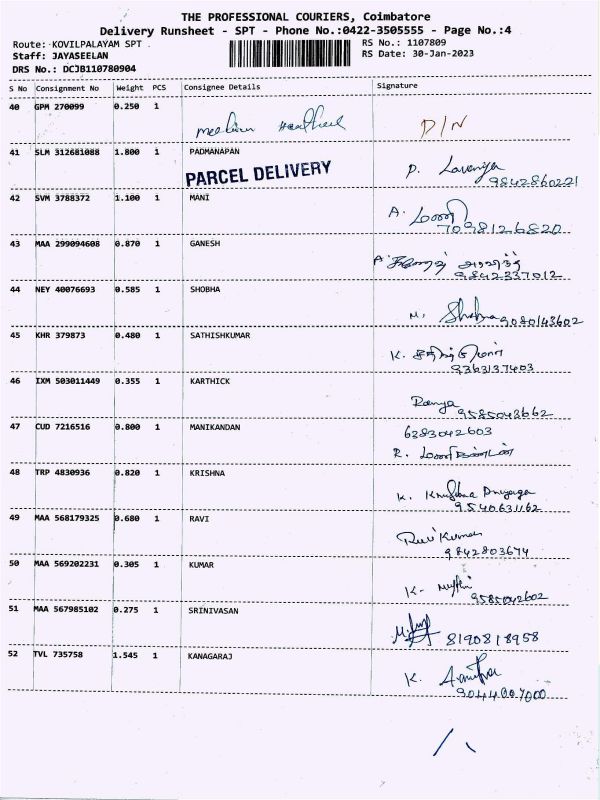 THE PROFESSIONAL COURIERS, Coimbatore
Delivery Runsheet - SPT - Phone No.:0422-3505555 - Page No.:4
Route: KOVILPALAYAM SPT .
Staff: JAYASEELAN
DRS No.: DCJB110780904
RS No.: 1107809
RS Date: 30-Jan-2023
S No Consignment No Weight PCS Consignee Details Signature
40 GPM 270099 0.250 1 D/N
41 SLM 312681088 1.800 1 PADMANAPAN P. Lavanya
PARCEL DELIVERY 9842860221
42 SVM 3788372 1.100 1 MANI A.
7098126820
43 MAA 299094608 0.870 1 GANESH
9842337012
44 NEY 40076693 0.585 1 SHOBHA M. Shobana 9080143602
45 KHR 379873 0.480 1 SATHISHKUMAR K.
9363137403
46 IXM 503011449 0.355 1 KARTHICK Ramya
9585043662
47 CUD 7216516 0.800 1 MANIKANDAN 6383042603
R.
48 TRP 4830936 0.820 1 KRISHNA K. Krishna
9540631162
49 MAA 568179325 0.680 1 RAVI Ravi Kumar
9842803674
50 MAA 569202231 0.305 1 KUMAR K.
9585042602
51 MAA 567985102 0.275 1 SRINIVASAN
8190818958
52 TVL 735758 1.545 1 KANAGARAJ K.
9044007000